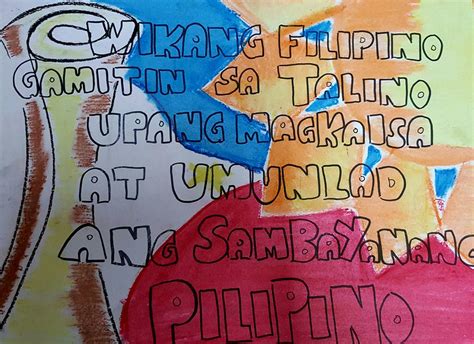 WIKANG FILIPINO
GAMITIN SA TALINO
UPANG MAGKAISA
AT UMUNLAD
ANG SAMBAYANANG
PILIPINO